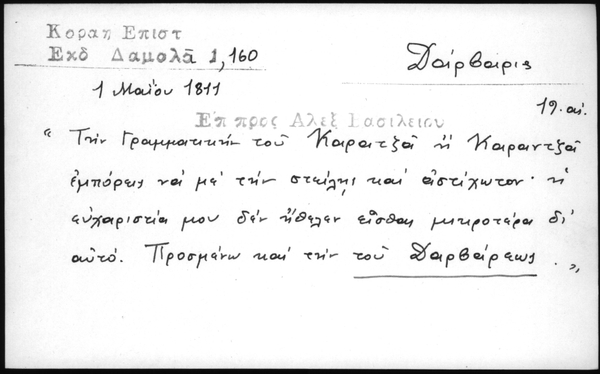 Κοραη Επιστ
Εκδ Δαμαλᾶ 1,160
Δάρβαρις
1 Μαΐου 1811
19. αἰ.
Επ προς Αλεξ Βασιλειου
" Τὴν Γραμματικὴν τοῦ Καρατζᾶ ἢ Καραντζᾶ
ἐμπόρεις νὰ μὲ τὴν στείλῃς καὶ ἀστίχωτον· ἡ
εὐχαριστία μου δὲν ἤθελεν εἶσθαι μικροτέρα δι'
αὐτό. Προσμένω καὶ τὴν τοῦ Δαρβάρεως. "